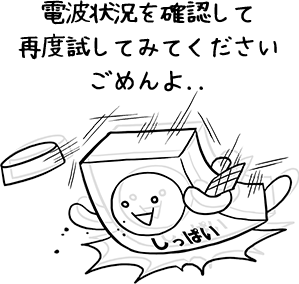 電波状況を確認して
再度試してみてください
ごめんよ..
しっぱい